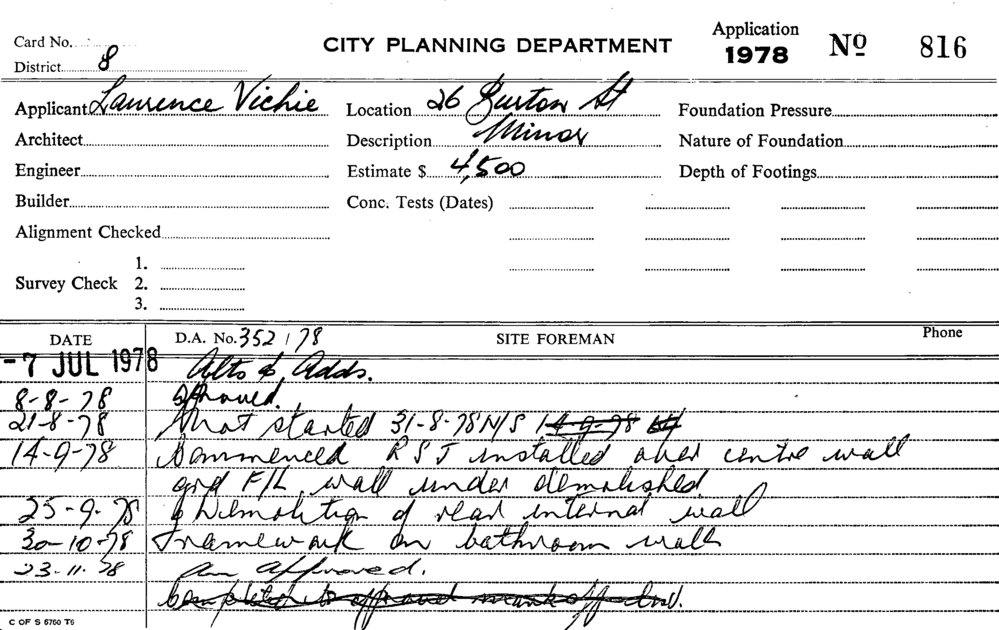 CITY PLANNING DEPARTMENT
Application
1978 Nº 816
Card No.
District 8
Applicant Laurence Vickie
Location 26 Burton St
Foundation Pressure
Architect
Description Minor
Nature of Foundation
Engineer
Estimate $ 4,500
Depth of Footings
Builder
Conc. Tests (Dates)
Alignment Checked
Survey Check 1.
2.
3.
DATE D.A. No. 352/78 SITE FOREMAN Phone
-7 JUL 1978 Alts & Adds.
8-8-78 Approved.
21-8-78 Not started 31-8-78 N/S 14-9-78
14-9-78 Commenced RSJ installed over centre wall
grd F/L wall under demolished
25-9-78 Demolition of rear internal wall
30-10-78 Framework on bathroom walls
23.11.78 Approved.
Completed to approved
C OF S 5760 T6